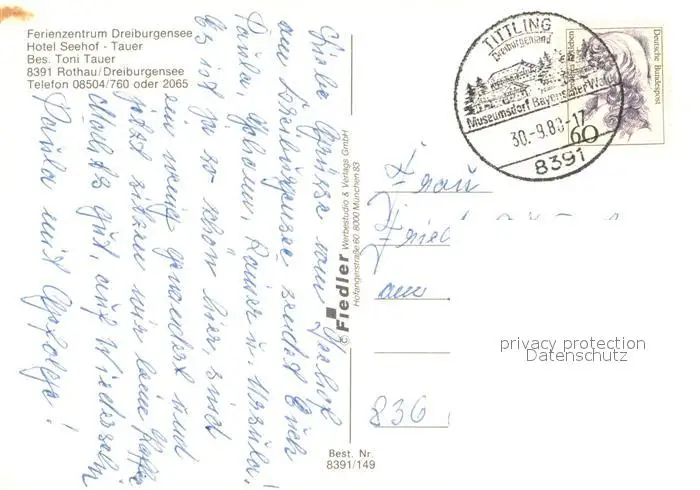 Ferienzentrum Dreiburgensee
Hotel Seehof - Tauer
Bes. Toni Tauer
8391 Rothau/Dreiburgensee
Telefon 08504/760 oder 2065
Liebe Grüsse vom Seehof
am Dreiburgensee sendet Euch
Paula, Johann, Rainer u. Ursula!
Es ist ja so schön hier, sind
ein wenig gewandert und
jetzt sitzen wir beim Kaffee
Machts gut, auf Wiedersehn
Paula mit Gefolge!
© Fiedler Werbestudio & Verlags GmbH
Hofangerstraße 60 8000 München 83
Best. Nr.
8391/149
TITTLING
Dreiburgenland
Museumsdorf Bayerischer Wald
30.-9.88-17
8391
Deutsche Bundespost
60
Frau
Fried
am
836
privacy protection
Datenschutz